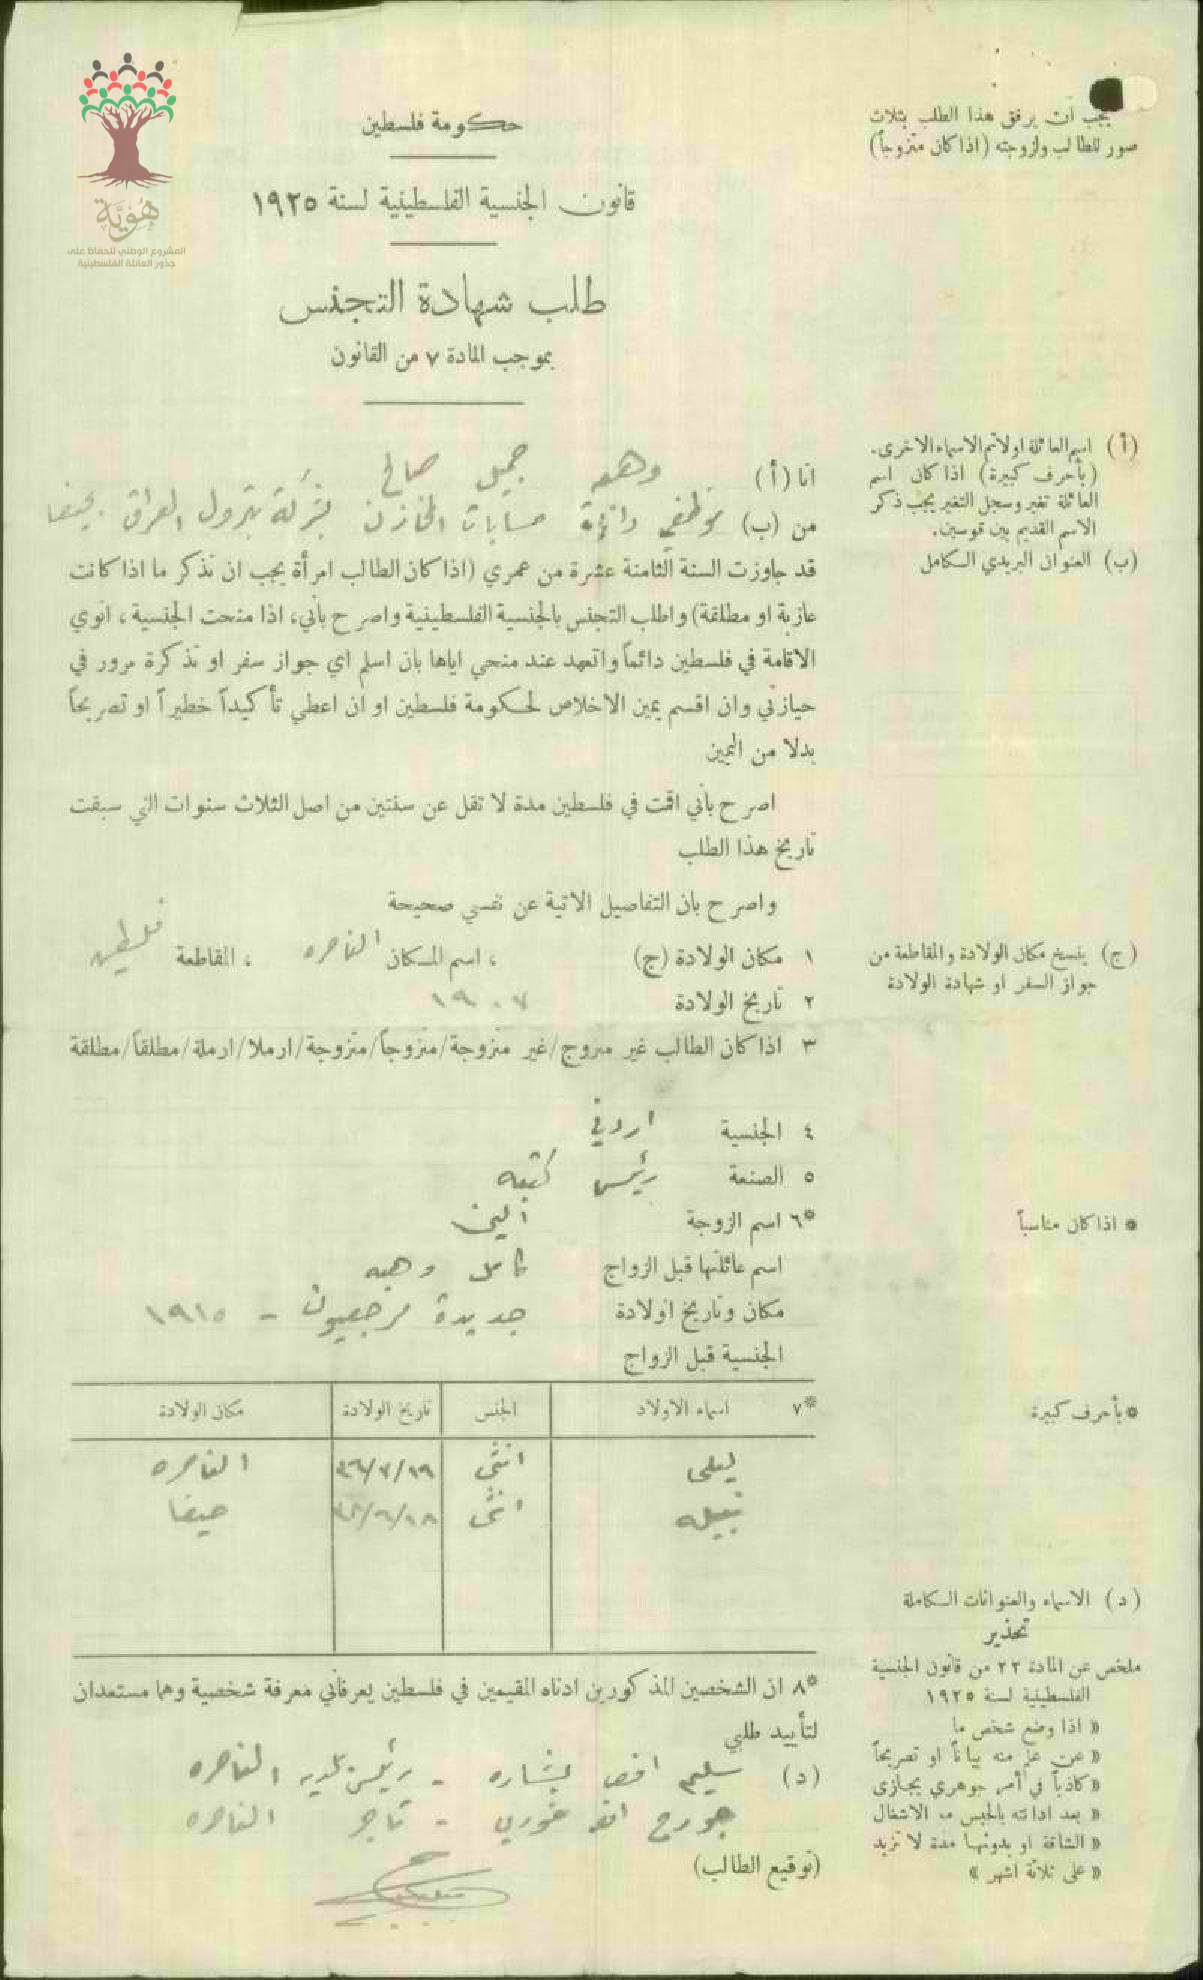 هُوِيَّة
المشروع الوطني للحفاظ على
جذور العائلة الفلسطينية
يجب ان يرفق هذا الطلب بثلاث
صور للطالب ولزوجته (اذا كان متزوجاً)
حكومة فلسطين
قانون الجنسية الفلسطينية لسنة ١٩٢٥
طلب شهادة التجنس
بموجب المادة ٧ من القانون
(أ) اسم العائلة اولا ثم الاسماء الاخرى.
(بأحرف كبيرة) اذا كان اسم
العائلة تغير وسجل التغير يجب ذكر
الاسم القديم بين قوسين.
(ب) العنوان البريدي الكامل
انا (أ) وهبه جميل صالح
من (ب) موظف دائرة حسابات المخازن بشركة بترول العراق بحيفا
قد جاوزت السنة الثامنة عشرة من عمري (اذا كان الطالب امرأة يجب ان تذكر ما اذا كانت
عازبة او مطلقة) واطلب التجنس بالجنسية الفلسطينية واصرح بأني، اذا منحت الجنسية، انوي
الاقامة في فلسطين دائماً واتعهد عند منحي اياها بان اسلم اي جواز سفر او تذكرة مرور في
حيازتي وان اقسم يمين الاخلاص لحكومة فلسطين او ان اعطي تأكيداً خطيراً او تصريحاً
بدلا من اليمين
اصرح بأني اقمت في فلسطين مدة لا تقل عن سنتين من اصل الثلاث سنوات التي سبقت
تاريخ هذا الطلب
واصرح بان التفاصيل الاتية عن نفسي صحيحة
(ج) ينسخ مكان الولادة والمقاطعة من
جواز السفر او شهادة الولادة
١ مكان الولادة (ج) ، اسم المكان الناصره ، المقاطعة فلسطين
٢ تاريخ الولادة ١٩٠٧
٣ اذا كان الطالب غير متزوج/غير متزوجة/متزوجاً/متزوجة/ارملا/ارملة/مطلقاً/مطلقة
٤ الجنسية اردني
٥ الصنعة رئيس كتبه
* اذا كان مناسباً
*٦ اسم الزوجة الين
اسم عائلتها قبل الزواج كامل وهبه
مكان وتاريخ الولادة جديدة مرجعيون - ١٩١٥
الجنسية قبل الزواج
* بأحرف كبيرة
*٧ اسماء الاولاد الجنس تاريخ الولادة مكان الولادة
ليلى انثى الناصره
نبيله انثى حيفا
(د) الاسماء والعنوانات الكاملة
تحذير
ملخص عن المادة ٢٢ من قانون الجنسية
الفلسطينية لسنة ١٩٢٥
« اذا وضع شخص ما
« عن علم منه بياناً او تصريحاً
« كاذباً في أمر جوهري يجازى
« بعد ادانته بالحبس مع الاشغال
« الشاقة او بدونها مدة لا تزيد
« على ثلاثة اشهر »
*٨ ان الشخصين المذكورين ادناه المقيمين في فلسطين يعرفاني معرفة شخصية وهما مستعدان
لتأييد طلبي
(د) سليم بشاره - رئيس بلدية الناصره
جورج خوري - تاجر الناصره
(توقيع الطالب)